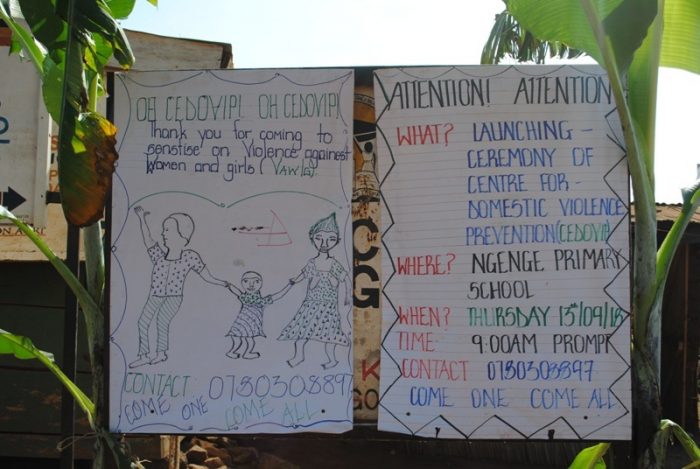 OH CEDOVIP! OH CEDOVIP!
Thank you for coming to
sensitise on Violence against
women and girls (VAWG).
CONTACT: 0780308897
COME ONE COME ALL
ATTENTION! ATTENTION
WHAT? LAUNCHING -
CEREMONY OF
CENTRE FOR -
DOMESTIC VIOLENCE
PREVENTION (CEDOVIP)
WHERE? NGENGE PRIMARY
SCHOOL
WHEN? THURSDAY 13th/09/18
TIME: 9:00AM PROMPT
CONTACT 0780308897
COME ONE COME ALL